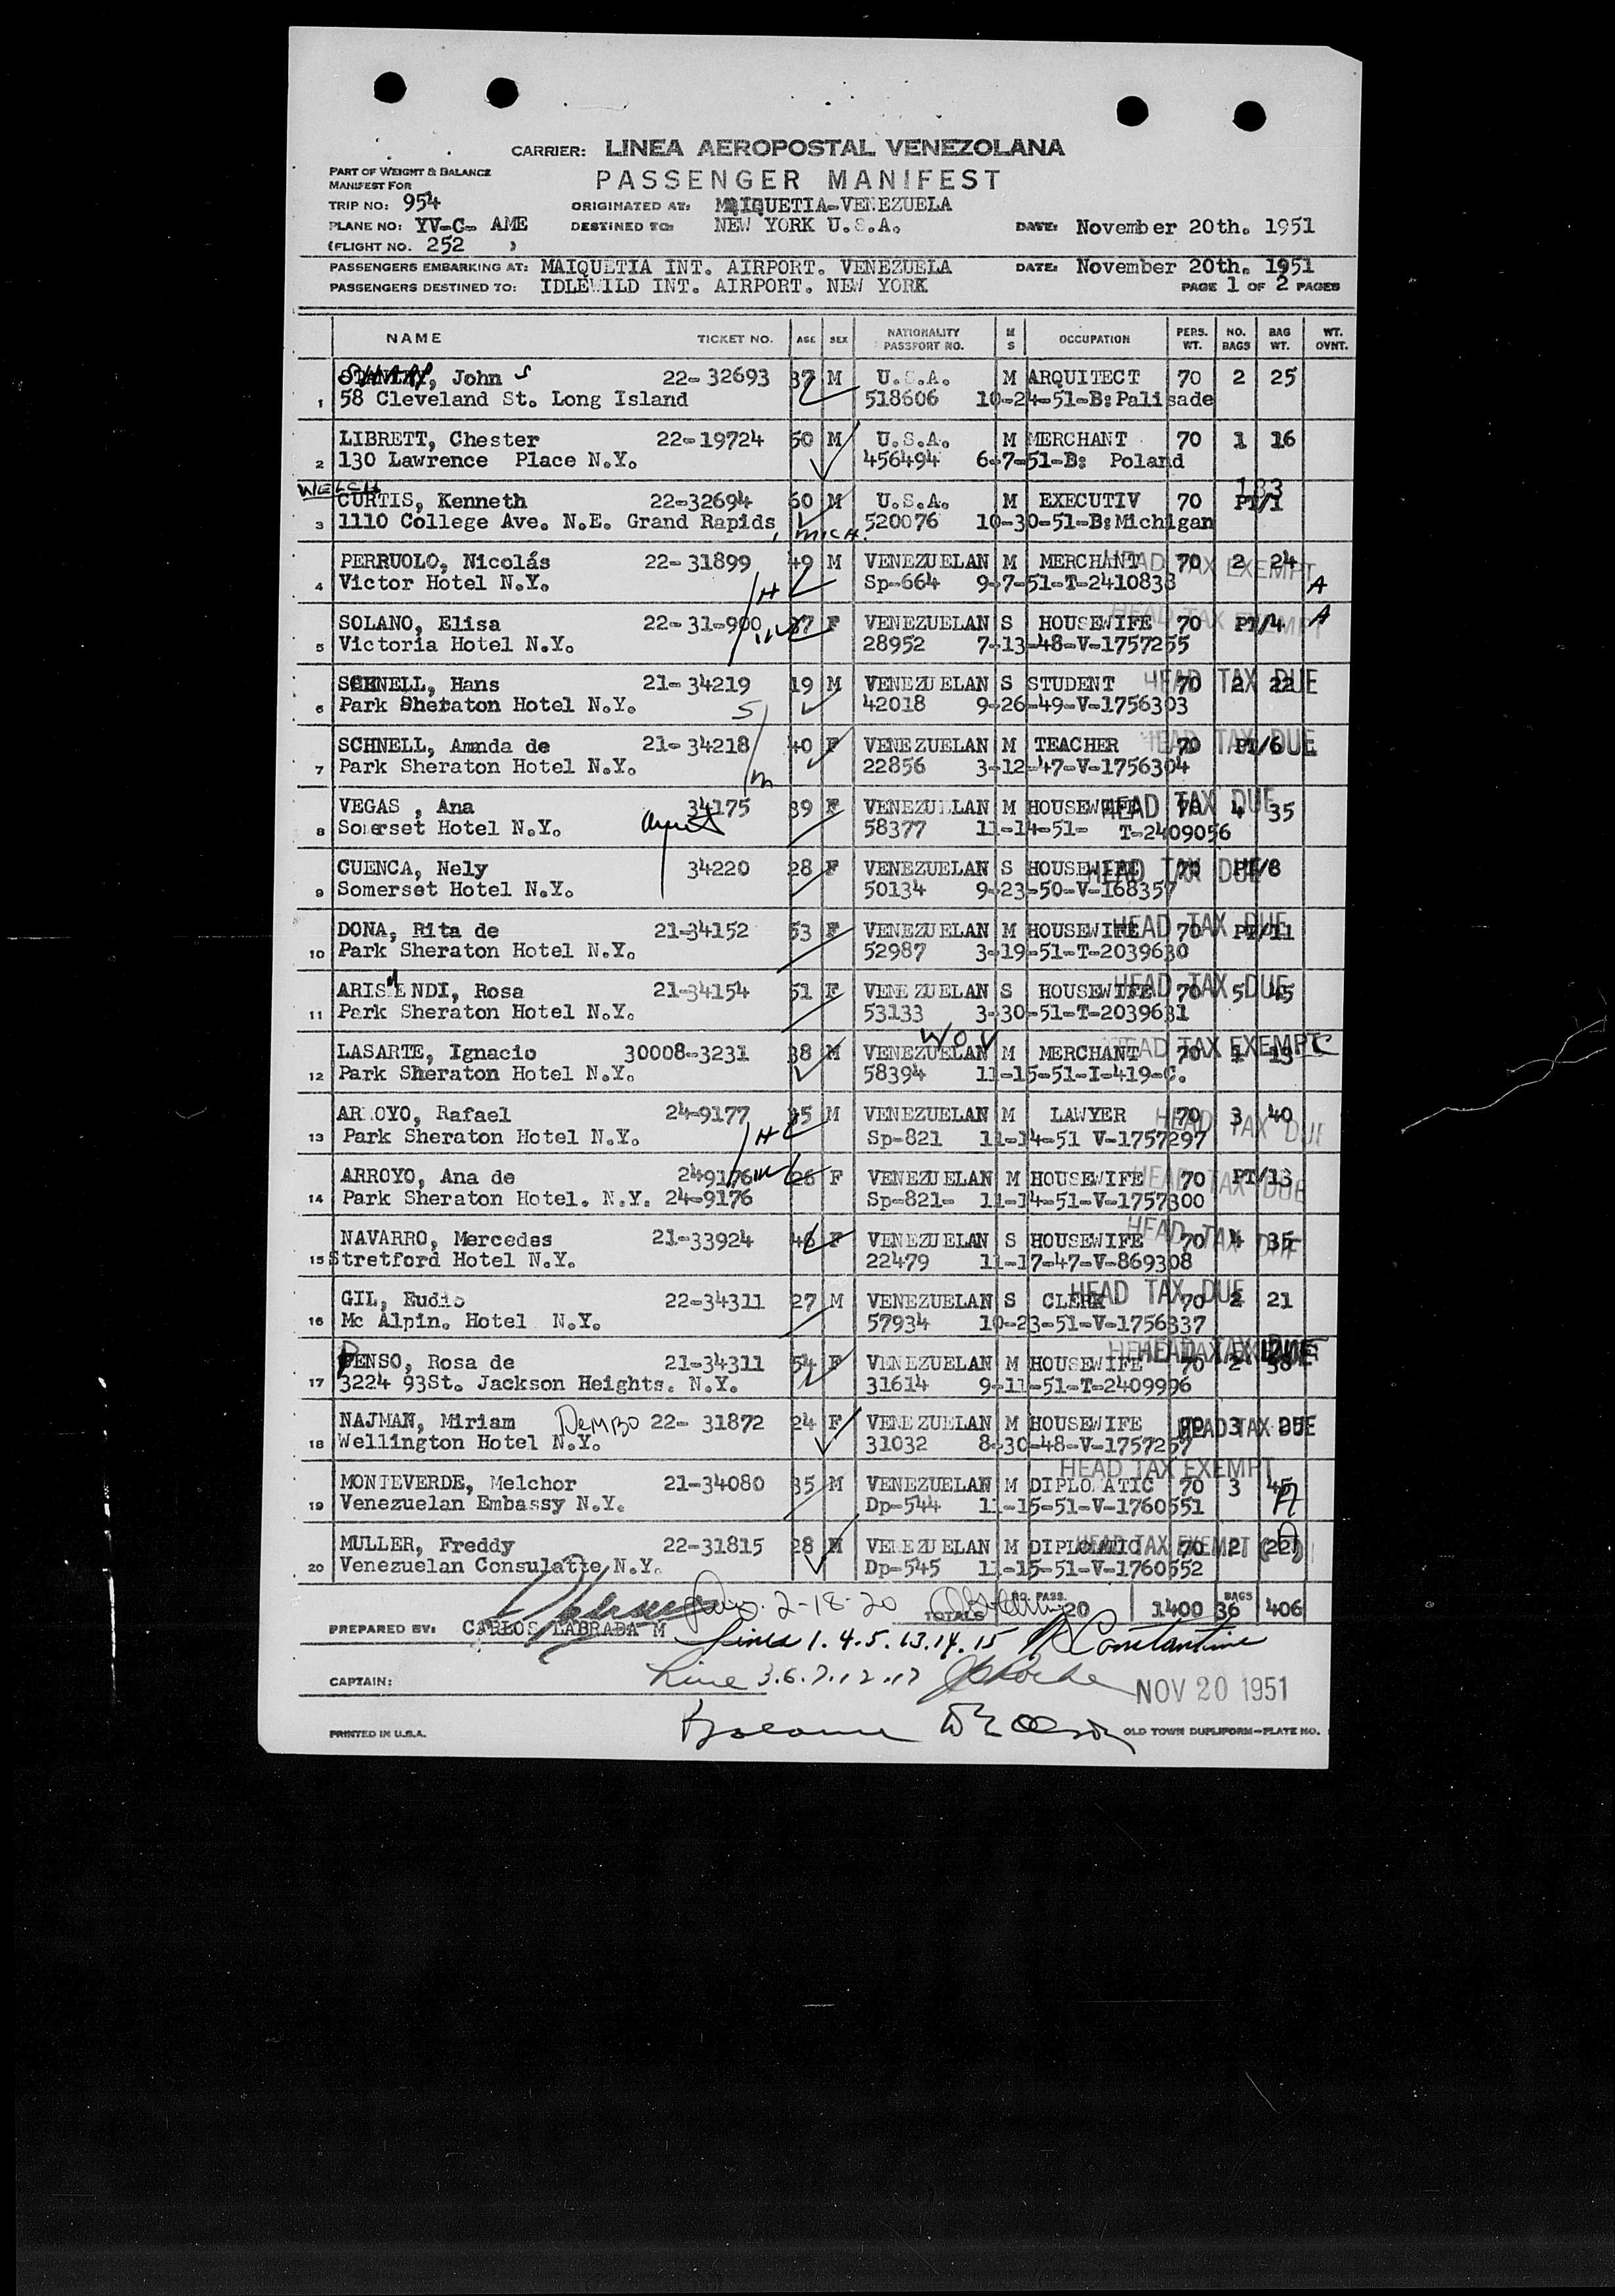 CARRIER: LINEA AEROPOSTAL VENEZOLANA
PART OF WEIGHT & BALANCE
MANIFEST FOR
PASSENGER MANIFEST
TRIP NO: 954 ORIGINATED AT: MAIQUETIA-VENEZUELA
PLANE NO: YV-C- AME DESTINED TO: NEW YORK U.S.A. DATE: November 20th. 1951
(FLIGHT NO. 252 )
PASSENGERS EMBARKING AT: MAIQUETIA INT. AIRPORT. VENEZUELA DATE: November 20th. 1951
PASSENGERS DESTINED TO: IDLEWILD INT. AIRPORT. NEW YORK PAGE 1 OF 2 PAGES
NAME TICKET NO. AGE SEX NATIONALITY PASSPORT NO. M S OCCUPATION PERS. WT. NO. BAGS BAG WT. WT. OVNT.
John S 22-32693 37 M U.S.A. M ARQUITECT 70 2 25
1 58 Cleveland St. Long Island 518606 10-24-51-B:Palisade
LIBRETT, Chester 22-19724 50 M U.S.A. M MERCHANT 70 1 16
2 130 Lawrence Place N.Y. 456494 6-7-51-B: Poland
WELCH 133
CURTIS, Kenneth 22-32694 60 M U.S.A. M EXECUTIV 70 PT/1
3 1110 College Ave. N.E. Grand Rapids, MICH. 520076 10-30-51-B:Michigan
PERRUOLO, Nicolás 22-31899 49 M VENEZUELAN M MERCHANT 70 2 24 HEAD TAX EXEMPT
4 Victor Hotel N.Y. H Sp-664 9-7-51-T-2410838 A
SOLANO, Elisa 22-31-900 37 F VENEZUELAN S HOUSEWIFE 70 PT/4 A HEAD TAX EXEMPT
5 Victoria Hotel N.Y. 28952 7-13-48-V-1757255
SCHNELL, Hans 21-34219 19 M VENEZUELAN S STUDENT 70 2 22 HEAD TAX DUE
6 Park Sheraton Hotel N.Y. S 42018 9-26-49-V-1756303
SCHNELL, Amnda de 21-34218 40 F VENEZUELAN M TEACHER 70 PT/6 HEAD TAX DUE
7 Park Sheraton Hotel N.Y. m 22856 3-12-47-V-1756304
VEGAS , Ana 34175 39 F VENEZUELAN M HOUSEWIFE 70 4 35 HEAD TAX DUE
8 Somerset Hotel N.Y. 58377 11-14-51- T-2409056
CUENCA, Nely 34220 28 F VENEZUELAN S HOUSEWIFE 70 PT/8 HEAD TAX DUE
9 Somerset Hotel N.Y. 50134 9-23-50-V-168357
DONA, Rita de 21-34152 53 F VENEZUELAN M HOUSEWIFE 70 PT/11 HEAD TAX DUE
10 Park Sheraton Hotel N.Y. 52987 3-19-51-T-2039630
Rosa 21-34154 51 F VENEZUELAN S HOUSEWIFE 70 5 45 HEAD TAX DUE
11 Park Sheraton Hotel N.Y. 53133 3-30-51-T-2039631
WOV
LASARTE, Ignacio 30008-3231 38 M VENEZUELAN M MERCHANT 70 1 13 HEAD TAX EXEMPT C
12 Park Sheraton Hotel N.Y. 58394 11-15-51-I-419-C.
ARROYO, Rafael 24-9177 35 M VENEZUELAN M LAWYER 70 3 40 HEAD TAX DUE
13 Park Sheraton Hotel N.Y. H Sp-821 11-14-51 V-1757297
ARROYO, Ana de 249176 26 F VENEZUELAN M HOUSEWIFE 70 PT/13 HEAD TAX DUE
14 Park Sheraton Hotel. N.Y. 24-9176 Sp-821- 11-14-51-V-1757300
NAVARRO, Mercedes 21-33924 46 F VENEZUELAN S HOUSEWIFE 70 4 35 HEAD TAX DUE
15 Stretford Hotel N.Y. 22479 11-17-47-V-869308
GIL, Eudio 22-34311 27 M VENEZUELAN S CLERK 70 2 21 HEAD TAX DUE
16 Mc Alpin. Hotel N.Y. 57934 10-23-51-V-1756337
PENSO, Rosa de 21-34311 54 F VENEZUELAN M HOUSEWIFE 70 2 38 HEAD TAX
17 3224 93St. Jackson Heights. N.Y. 31614 9-11-51-T-2409996
NAJMAN, Miriam DEMBO 22- 31872 24 F VENEZUELAN M HOUSEWIFE 70 3 25 HEAD TAX DUE
18 Wellington Hotel N.Y. 31032 8-30-48-V-1757257
HEAD TAX EXEMPT
MONTEVERDE, Melchor 21-34080 35 M VENEZUELAN M DIPLOMATIC 70 3 45
19 Venezuelan Embassy N.Y. Dp-544 11-15-51-V-1760551 A
MULLER, Freddy 22-31815 28 M VENEZUELAN M DIPLOMATIC 70 2 22 HEAD TAX EXEMPT A
20 Venezuelan Consulatte N.Y. Dp-545 11-15-51-V-1760552
2-18-20 TOTALS NO. PASS. 20 1400 BAGS 36 406
PREPARED BY: CARLOS LABRADA M
Lines 1.4.5.13.14.15 Constantine
CAPTAIN: Line 3.6.7.12.17 NOV 20 1951
PRINTED IN U.S.A. OLD TOWN DUPLIFORM-PLATE NO.